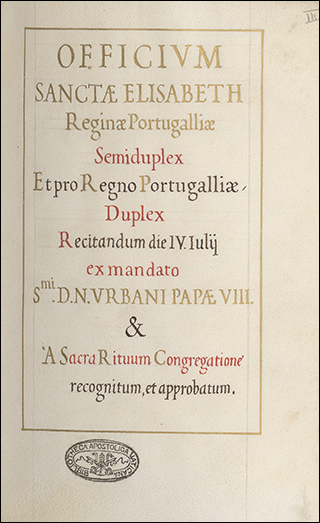 OFFICIVM
SANCTÆ ELISABETH
Reginæ Portugalliæ
Semiduplex
Et pro Regno Portugalliæ,
Duplex
Recitandum die IV. Iulij
ex mandato
Smi. D.N. VRBANI PAPÆ VIII.
&
A Sacra Rituum Congregatione
recognitum, et approbatum.
BIBLIOTHECA APOSTOLICA VATICANA